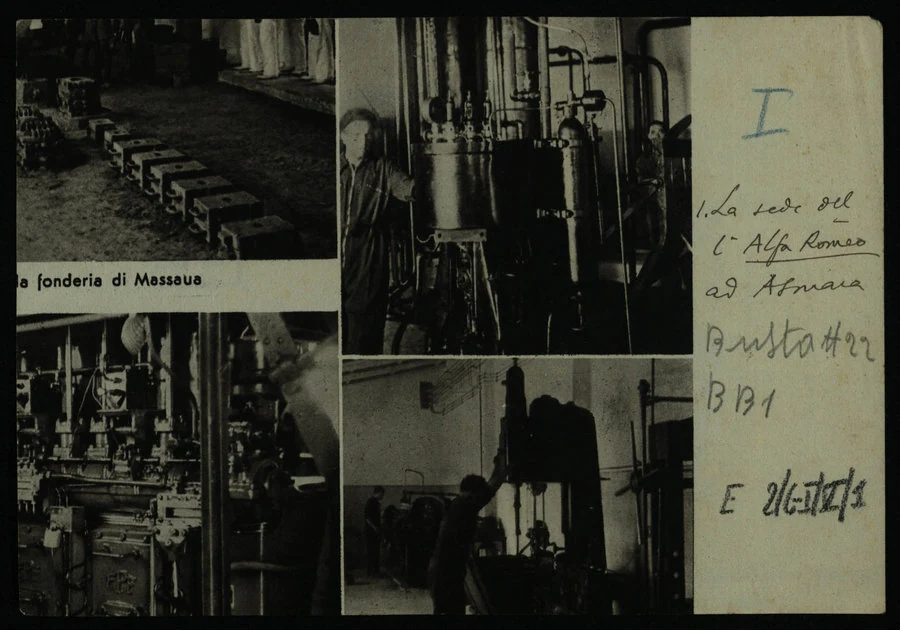 la fonderia di Massaua
I
1. La sede del
l' Alfa Romeo
ad Asmara
Busta #22
BB1
E 2/6-I/II/1